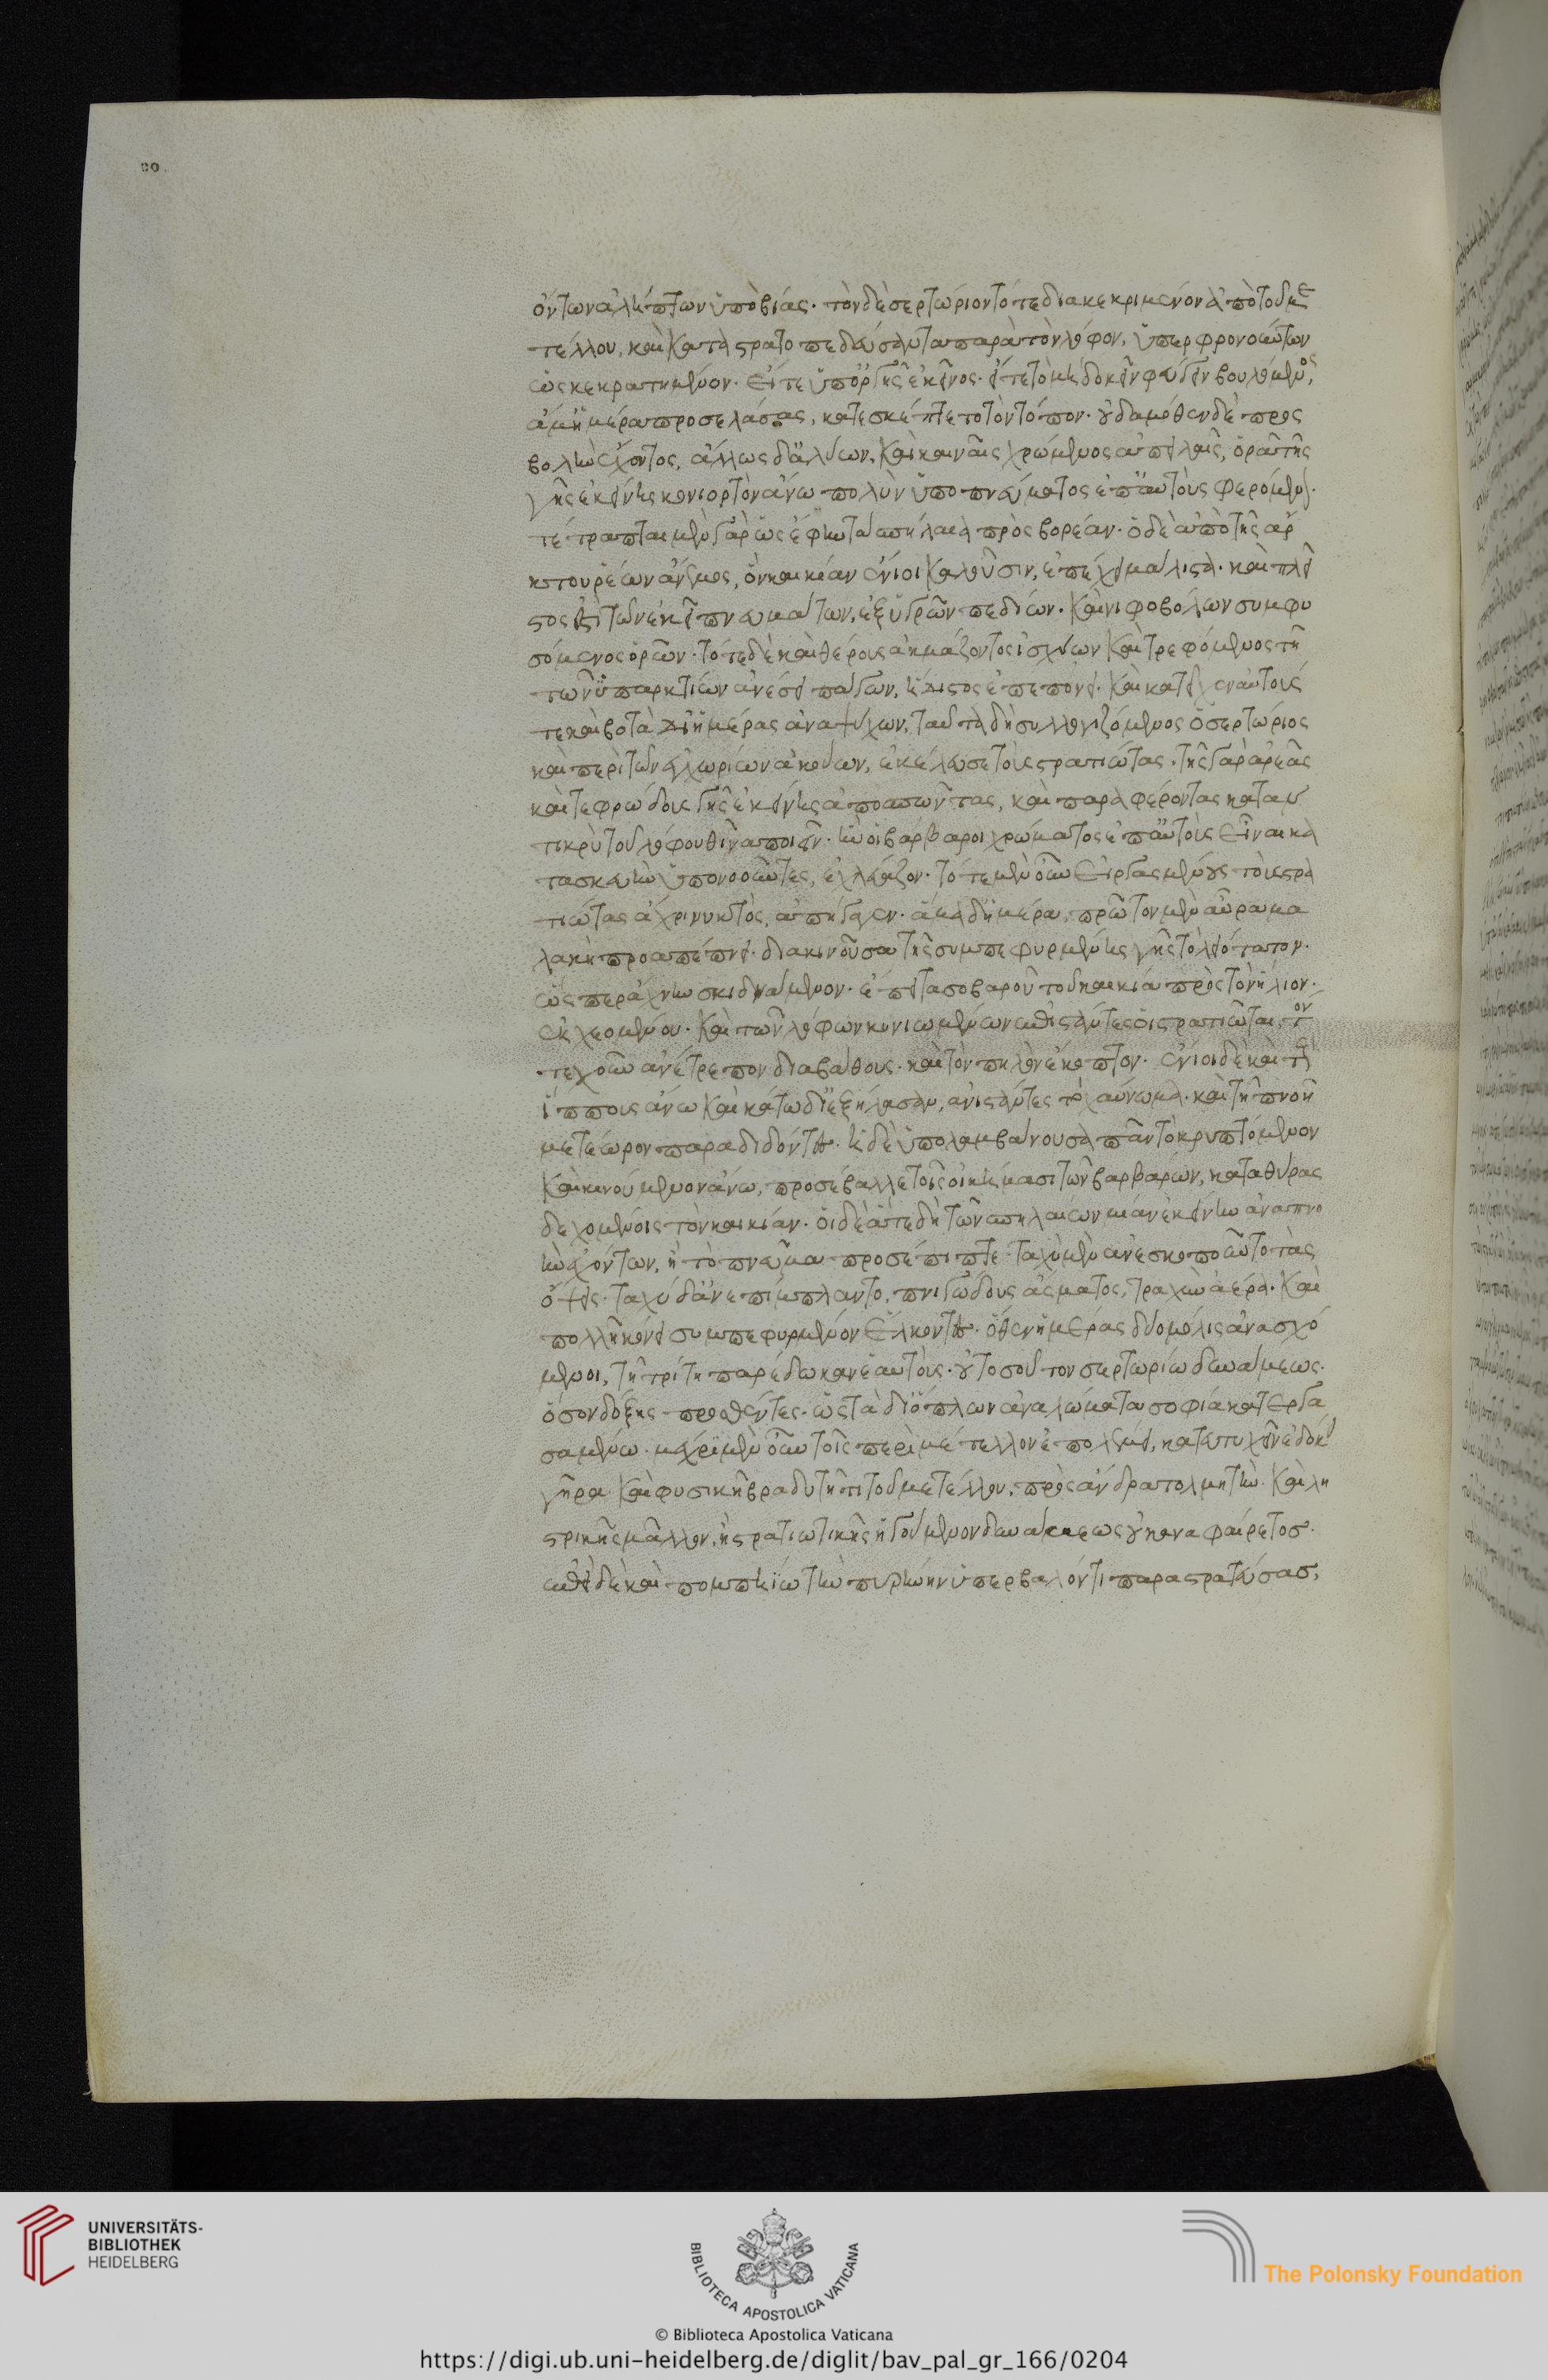 ὄντων ἀλήπτων ὑπὸ βίας. τὸν δὲ σερτώριον τότε διακεκριμένον ἀπὸ τοῦ με
τέλλου, καὶ καταστρατοπεδεύσαντα παρὰ τὸν λόφον, ὑπερφρονούντων
ὡς κεκρατημένον. εἴτε ὑπ᾽ ὀργῆς ἐκεῖνος. εἴτε τὸ μὴ δοκεῖν φεύγειν βουλόμενος,
ἅμ᾽ ἡμέρα προσελάσας, κατεσκέπτετο τὸν τόπον. οὐδαμόθεν δὲ προσ
βολὴν ἔχοντος, ἄλλως δ᾽ ἀλύων, καὶ κεναῖς χρώμενος ἀπειλαῖς, ὁρᾶ τῆς
γῆς ἐκείνης κονιορτὸν ἄνω πολὺν ὑπὸ πνεύματος ἐπ᾽ αὐτοὺς φερόμενον.
τέτραπται μὲν γὰρ ὡς ἔφην τὰ σπήλαια πρὸς βορέαν. ὁ δὲ ἀπὸ τῆς ἄρ
κτου ῥέων ἄνεμος, ὃν καικίαν ἔνιοι καλοῦσιν, ἐπέχει μάλιστα. καὶ πλεῖ
στος ἐστὶ τῶν ἐκεῖ πνευμάτων, ἐξ ὑγρῶν πεδίων. καὶ νιφοβόλων συμφυ
σόμενος ὀρῶν. τότε δὲ καὶ θέρους ἀκμάζοντος ἰσχύων καὶ τρεφόμενος τῆ
τῶν ὑπαρκτίων ἀνέσει πάγων, ἥδιστος ἐπέπνει. καὶ κατεῖχεν αὐτούς
τε καὶ βοτὰ δι᾽ ἡμέρας ἀναψύχων, ταῦτα δὴ συλλογιζόμενος ὁ σερτώριος
καὶ περὶ τῶν ἐγχωρίων ἀκούων, ἐκέλευσε τοὺς στρατιώτας. τῆς γὰρ ἀραιᾶς
καὶ τεφρώδους γῆς ἐκείνης ἀποσπῶντας, καὶ παραφέροντας καταν
τικρὺ τοῦ λόφου θῖνα ποιεῖν. ἣν οἱ βάρβαροι χώματος ἐπ᾽ αὐτοὺς εἶναι κα
τασκευὴν ὑπονοοῦντες, ἐχλεύαζον. τότε μὲν οὖν ἐργασαμένους τοὺς στρα
τιώτας ἄχρι νυκτὸς, ἀπήγαγεν. ἅμα δ᾽ ἡμέρα, πρῶτον μὲν αὔρα μα
λακὴ προσέπνει. διακινοῦσα τῆς συμπεφυρμένης γῆς τὸ λειότατον.
ὥσπερ ἄχνην σκιδνάμενον. ἔπειτα σοβαροῦ τοῦ καικία πρὸς τὸν ἥλιον
ἐκχεομένου. καὶ τῶν λόφων κονιωμένων ἐπιστάντες οἱ στρατιῶται, τόν
τε χοῦν ἀνέτρεπον διὰ βάθους. καὶ τὸν πηλὸν ἔκοπτον. ἔνιοι δὲ καὶ τοὺς
ἵππους ἄνω καὶ κάτω διεξήλασαν, ἀνιστάντες τὸ χαύνωμα. καὶ τῆ πνοῆ
μετέωρον παραδιδόντες. ἡ δὲ ὑπολαμβάνουσα πᾶν τὸ κρυπτόμενον
καὶ κινούμενον ἄνω, προσέβαλλε τοῖς οἰκήμασι τῶν βαρβάρων, κατὰ θύρας
δεχομένοις τὸν καικίαν. οἱ δὲ ἅτε δὴ τῶν σπηλαίων μίαν ἐκείνην ἀναπνο
ὴν ἐχόντων, ἣ τὸ πνεῦμα προσέπιπτε. ταχὺ μὲν ἀνεσκοποῦντο τὰς
ὄψεις. ταχὺ δ᾽ ἀνεπίμπλαντο, πνιγώδους ἄσματος, τραχὺν ἀέρα. καὶ
πολλῆ κόνει συμπεφυρμένον ἕλκοντες. ὅθεν ἡμέρας δύο μόλις ἀνασχό
μενοι, τῆ τρίτη παρέδωκαν ἑαυτοὺς. οὐ τοσοῦτον σερτωρίω δυνάμεως.
ὅσον δόξης προσθέντες. ὡς τὰ δι᾽ ὅπλων ἀνάλωτα σοφία κατεργα
σαμένω. μέχρι μὲν οὖν τοῖς περὶ μέτελλον ἐπολέμει, κατευτυχεῖν ἐδόκει
γήρα καὶ φυσικῆ βραδυτῆτι τοῦ μετέλλου, πρὸς ἄνδρα τολμητὴν. καὶ λη
στρικῆς μᾶλλον, ἢ στρατιωτικῆς ἡγούμενον δυνάμεως οὐκ ἀναφαίρετος.
ἐπεὶ δὲ καὶ πομπηίω τὴν πυρήνην ὑπερβαλόντι παραστρατεύσας,
UNIVERSITÄTS-
BIBLIOTHEK
HEIDELBERG
BIBLIOTECA APOSTOLICA VATICANA
The Polonsky Foundation
© Biblioteca Apostolica Vaticana
https://digi.ub.uni-heidelberg.de/diglit/bav_pal_gr_166/0204